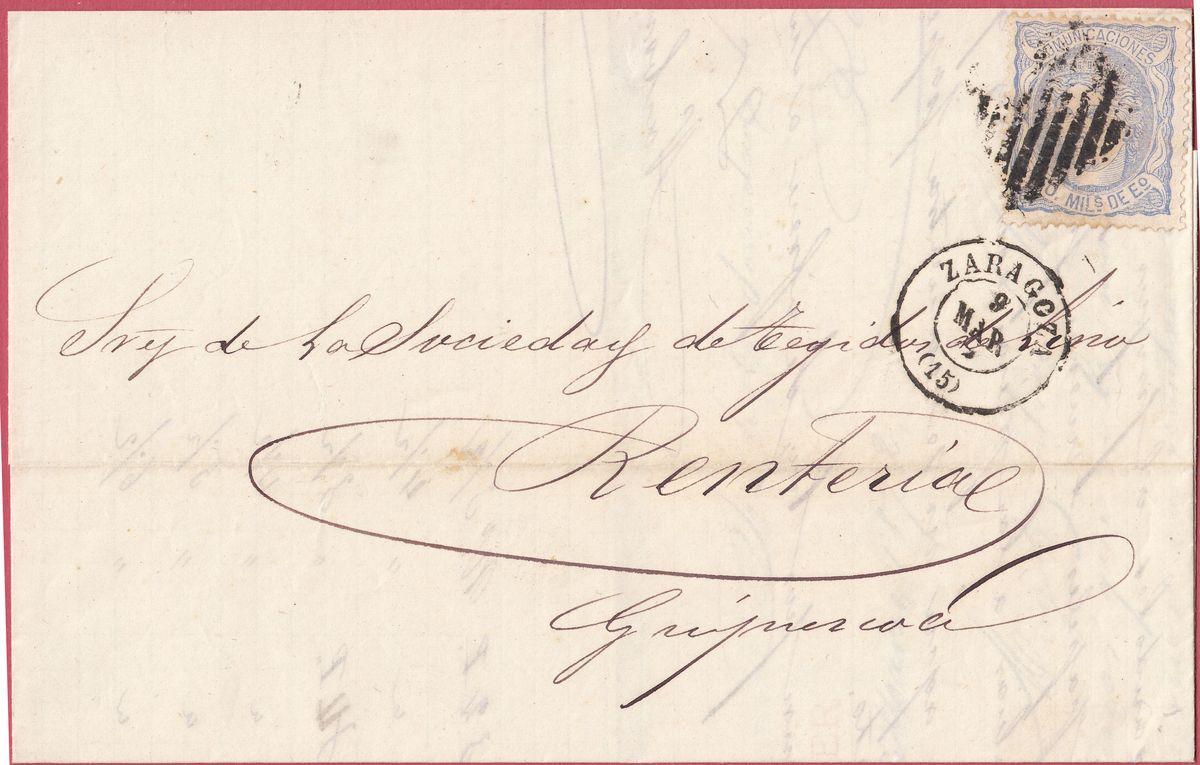 COMUNICACIONES
MILS DE EO
ZARAGOZA
9
MAR
(15)
Sres de la Sociedad de Tegidos de Lino
Renteria
Guipuzcoa